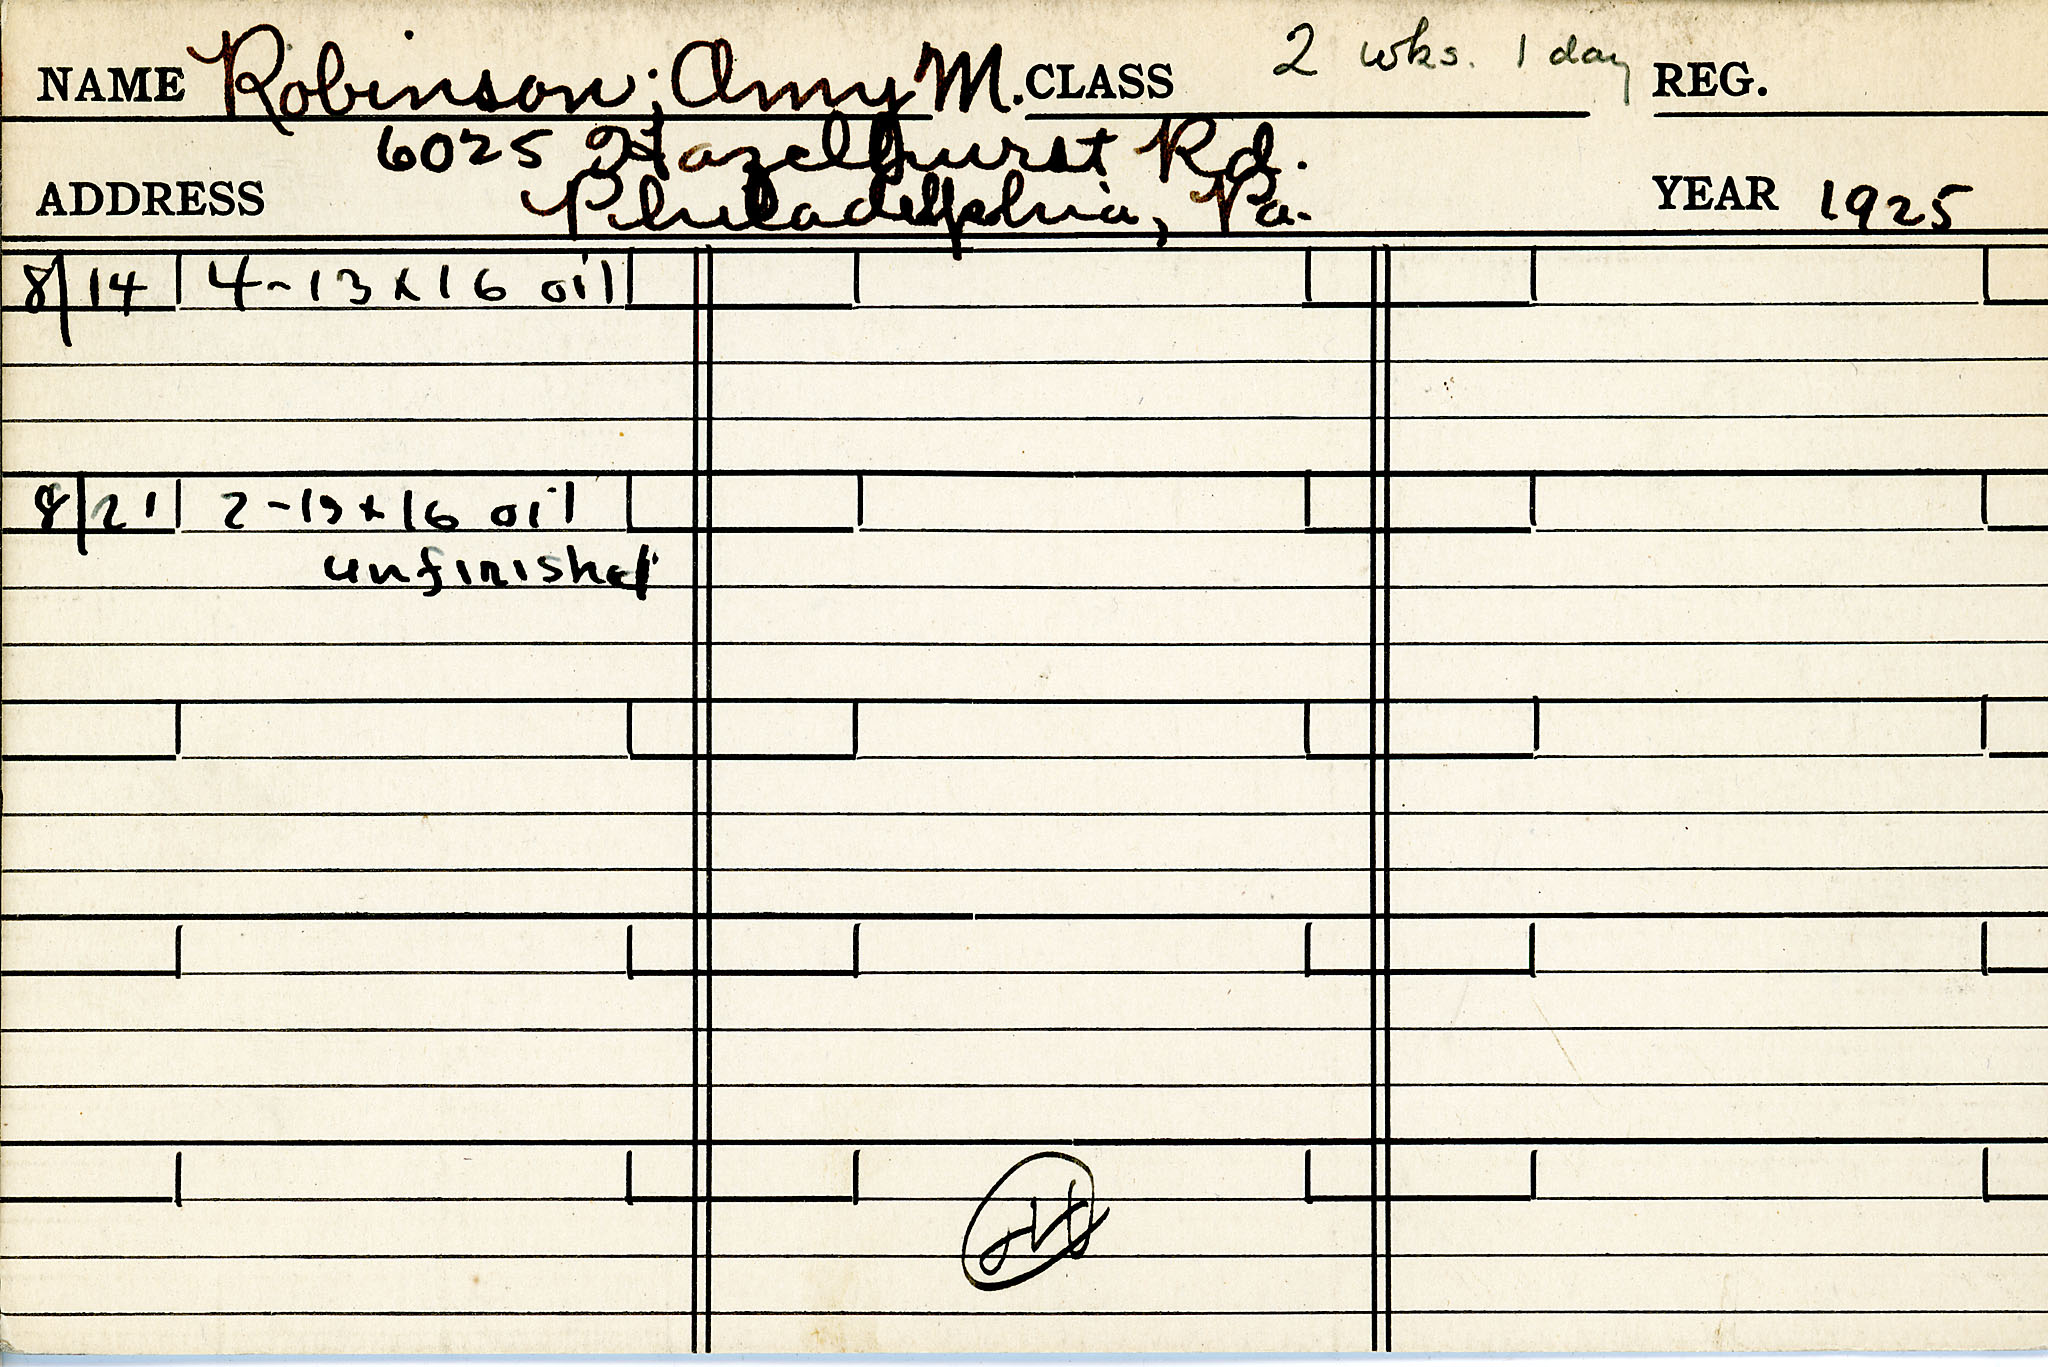 NAME Robinson, Amy M. CLASS 2 wks. 1 day REG.
6025 Hazelhurst Rd.
ADDRESS Philadelphia, Pa. YEAR 1925
8/14 4-13x16 oil
8/21 2-13x16 oil
unfinished